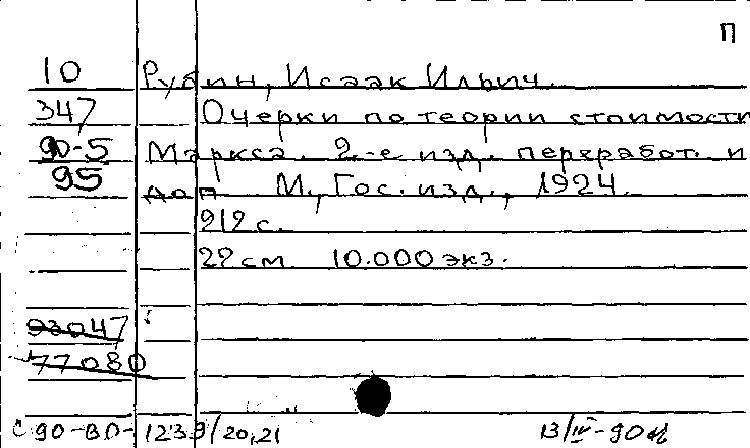 П
10 Рубин, Исаак Ильич.
347 Очерки по теории стоимости
90-5 Маркса. 2-е изд. переработ. и
95 доп. М., Гос. изд., 1924.
212 с.
22 см 10.000 экз.
93047
77080
с 90-80-1239/20,21 13/IV-90